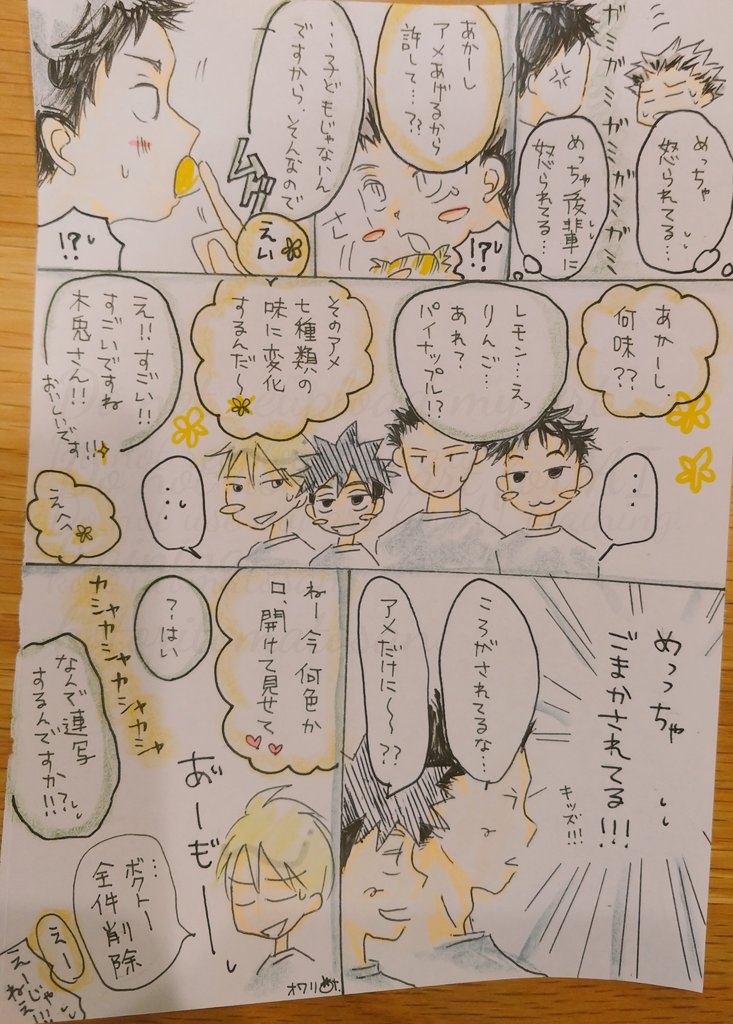 ガミガミガミガミガミ
めっちゃ
怒られてる…
めっちゃ後輩に
怒られてる…
あかーし
アメあげるから
許して…??
!?
…子どもじゃないん
ですから、そんなので
ムグ
えい
!?
あかーし
何味??
レモン…えっ
りんご…
あれ?
パイナップル!?
そのアメ
七種類の
味に変化
するんだ〜
え!!すごい!!
すごいですね
木兎さん!!
おいしいです!!!
えへへ
…
…
めっっちゃ
ごまかされてる!!!
キッズ!!!
ころがされてるな…
アメだけに〜〜??
ねー今何色か
口、開けて見せて
?はい
カシャカシャカシャカシャ
なんで連写
するんですか!!?
あーもー
…ボクトー
全件削除
えー
えーじゃ
ねえ!!!
オワリ